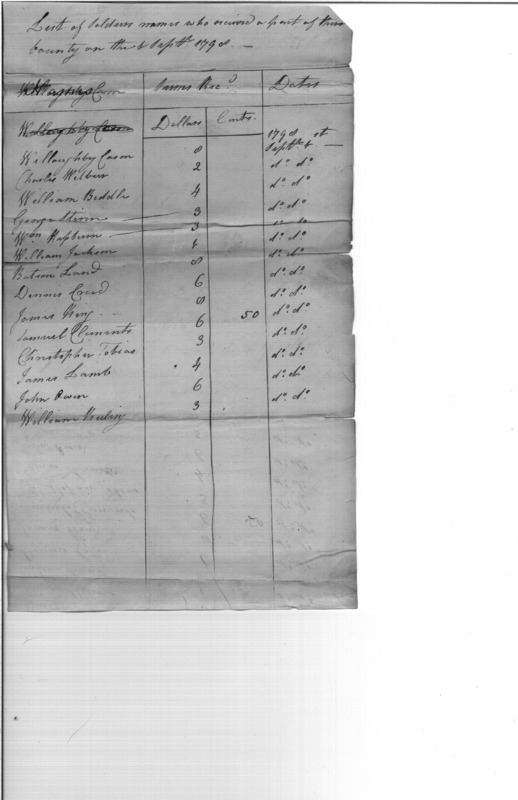 List of Soldiers names who received a part of their
bounty on the 6 Septr. 1798. —
Sums Recd. Dates
Willoughby Cason Dollars Cents. 1798 at
Willoughby Cason 8 Septr. 6 —
Charles Wilbur 2 do. do.
William Biddle 4 do. do.
George Stinson 3 do. do.
Wm. Hapburn 3 do. do.
William Jackson 4 do. do.
Bateson Land 8
Dennis Creed 6 do. do.
James King 8 do. do.
Samuel Clements 6 50 do. do.
Christopher Tobias 3 do. do.
James Lamb 4 do. do.
John Owen 6 do. do.
William Kirby 3 do. do.